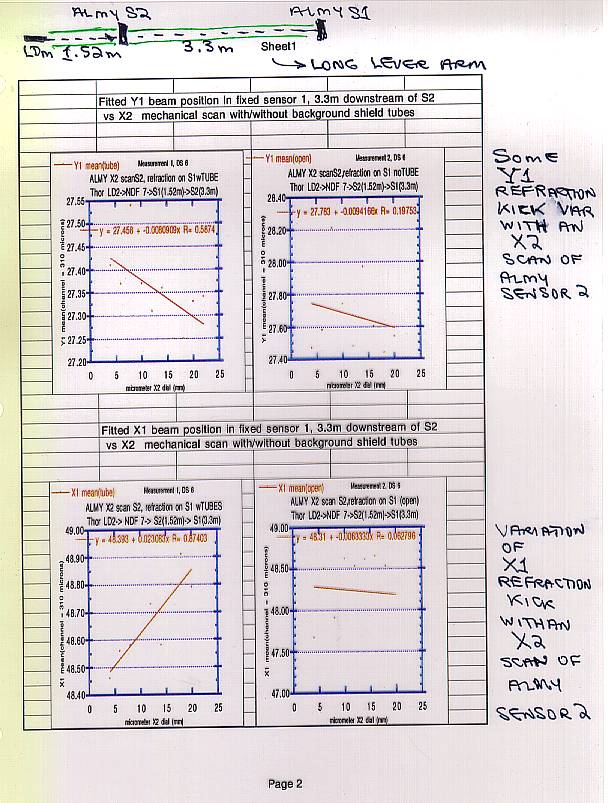 ALMY S2
ALMY S1
LDM 1.52m
3.3m
Sheet1
LONG LEVER ARM
Fitted Y1 beam position in fixed sensor 1, 3.3m downstream of S2
vs X2 mechanical scan with/without background shield tubes
Y1 mean(tube)
Measurement 1, DS 6
ALMY X2 scanS2, refraction on S1wTUBE
Thor LD2->NDF 7->S1(1.52m)->S2(3.3m)
y = 27.458 + -0.0080909x R= 0.5874
Y1 mean(channel = 310 microns)
27.55
27.50
27.45
27.40
27.35
27.30
27.25
27.20
0 5 10 15 20 25
micrometer X2 dial (mm)
Y1 mean(open)
Measurement 2, DS 6
ALMY X2 scanS2,refraction on S1 noTUBE
Thor LD2->NDF 7->S2(1.52m)->S1(3.3m)
y = 27.783 + -0.0094166x R= 0.19753
Y1 mean(channel = 310 microns)
28.40
28.20
28.00
27.80
27.60
27.40
0 5 10 15 20 25
micrometer X2 dial (mm)
SOME
Y1
REFRACTION
KICK VAR
WITH AN
X2
SCAN OF
ALMY
SENSOR 2
Fitted X1 beam position in fixed sensor 1, 3.3m downstream of S2
vs X2 mechanical scan with/without background shield tubes
X1 mean(tube)
Measurement 1, DS 6
ALMY X2 scan S2, refraction on S1 wTUBES
Thor LD2-> NDF 7-> S2(1.52m)-> S1(3.3m)
y = 48.393 + 0.023083x R= 0.87403
X1 mean(channel = 310 microns)
49.00
48.90
48.80
48.70
48.60
48.50
48.40
0 5 10 15 20 25
micrometer X2 dial (mm)
X1 mean(open)
Measurement 2, DS 6
ALMY X2 scan S2,refraction on S1 (open)
Thor LD2->NDF 7->S2(1.52m)->S1(3.3m)
y = 48.31 + -0.0063333x R= 0.062796
X1 mean(channel = 310 microns)
49.00
48.50
48.00
47.50
47.00
0 5 10 15 20 25
micrometer X2 dial (mm)
VARIATION
OF
X1
REFRACTION
KICK
WITHAN
X2
SCAN OF
ALMY
SENSOR 2
Page 2